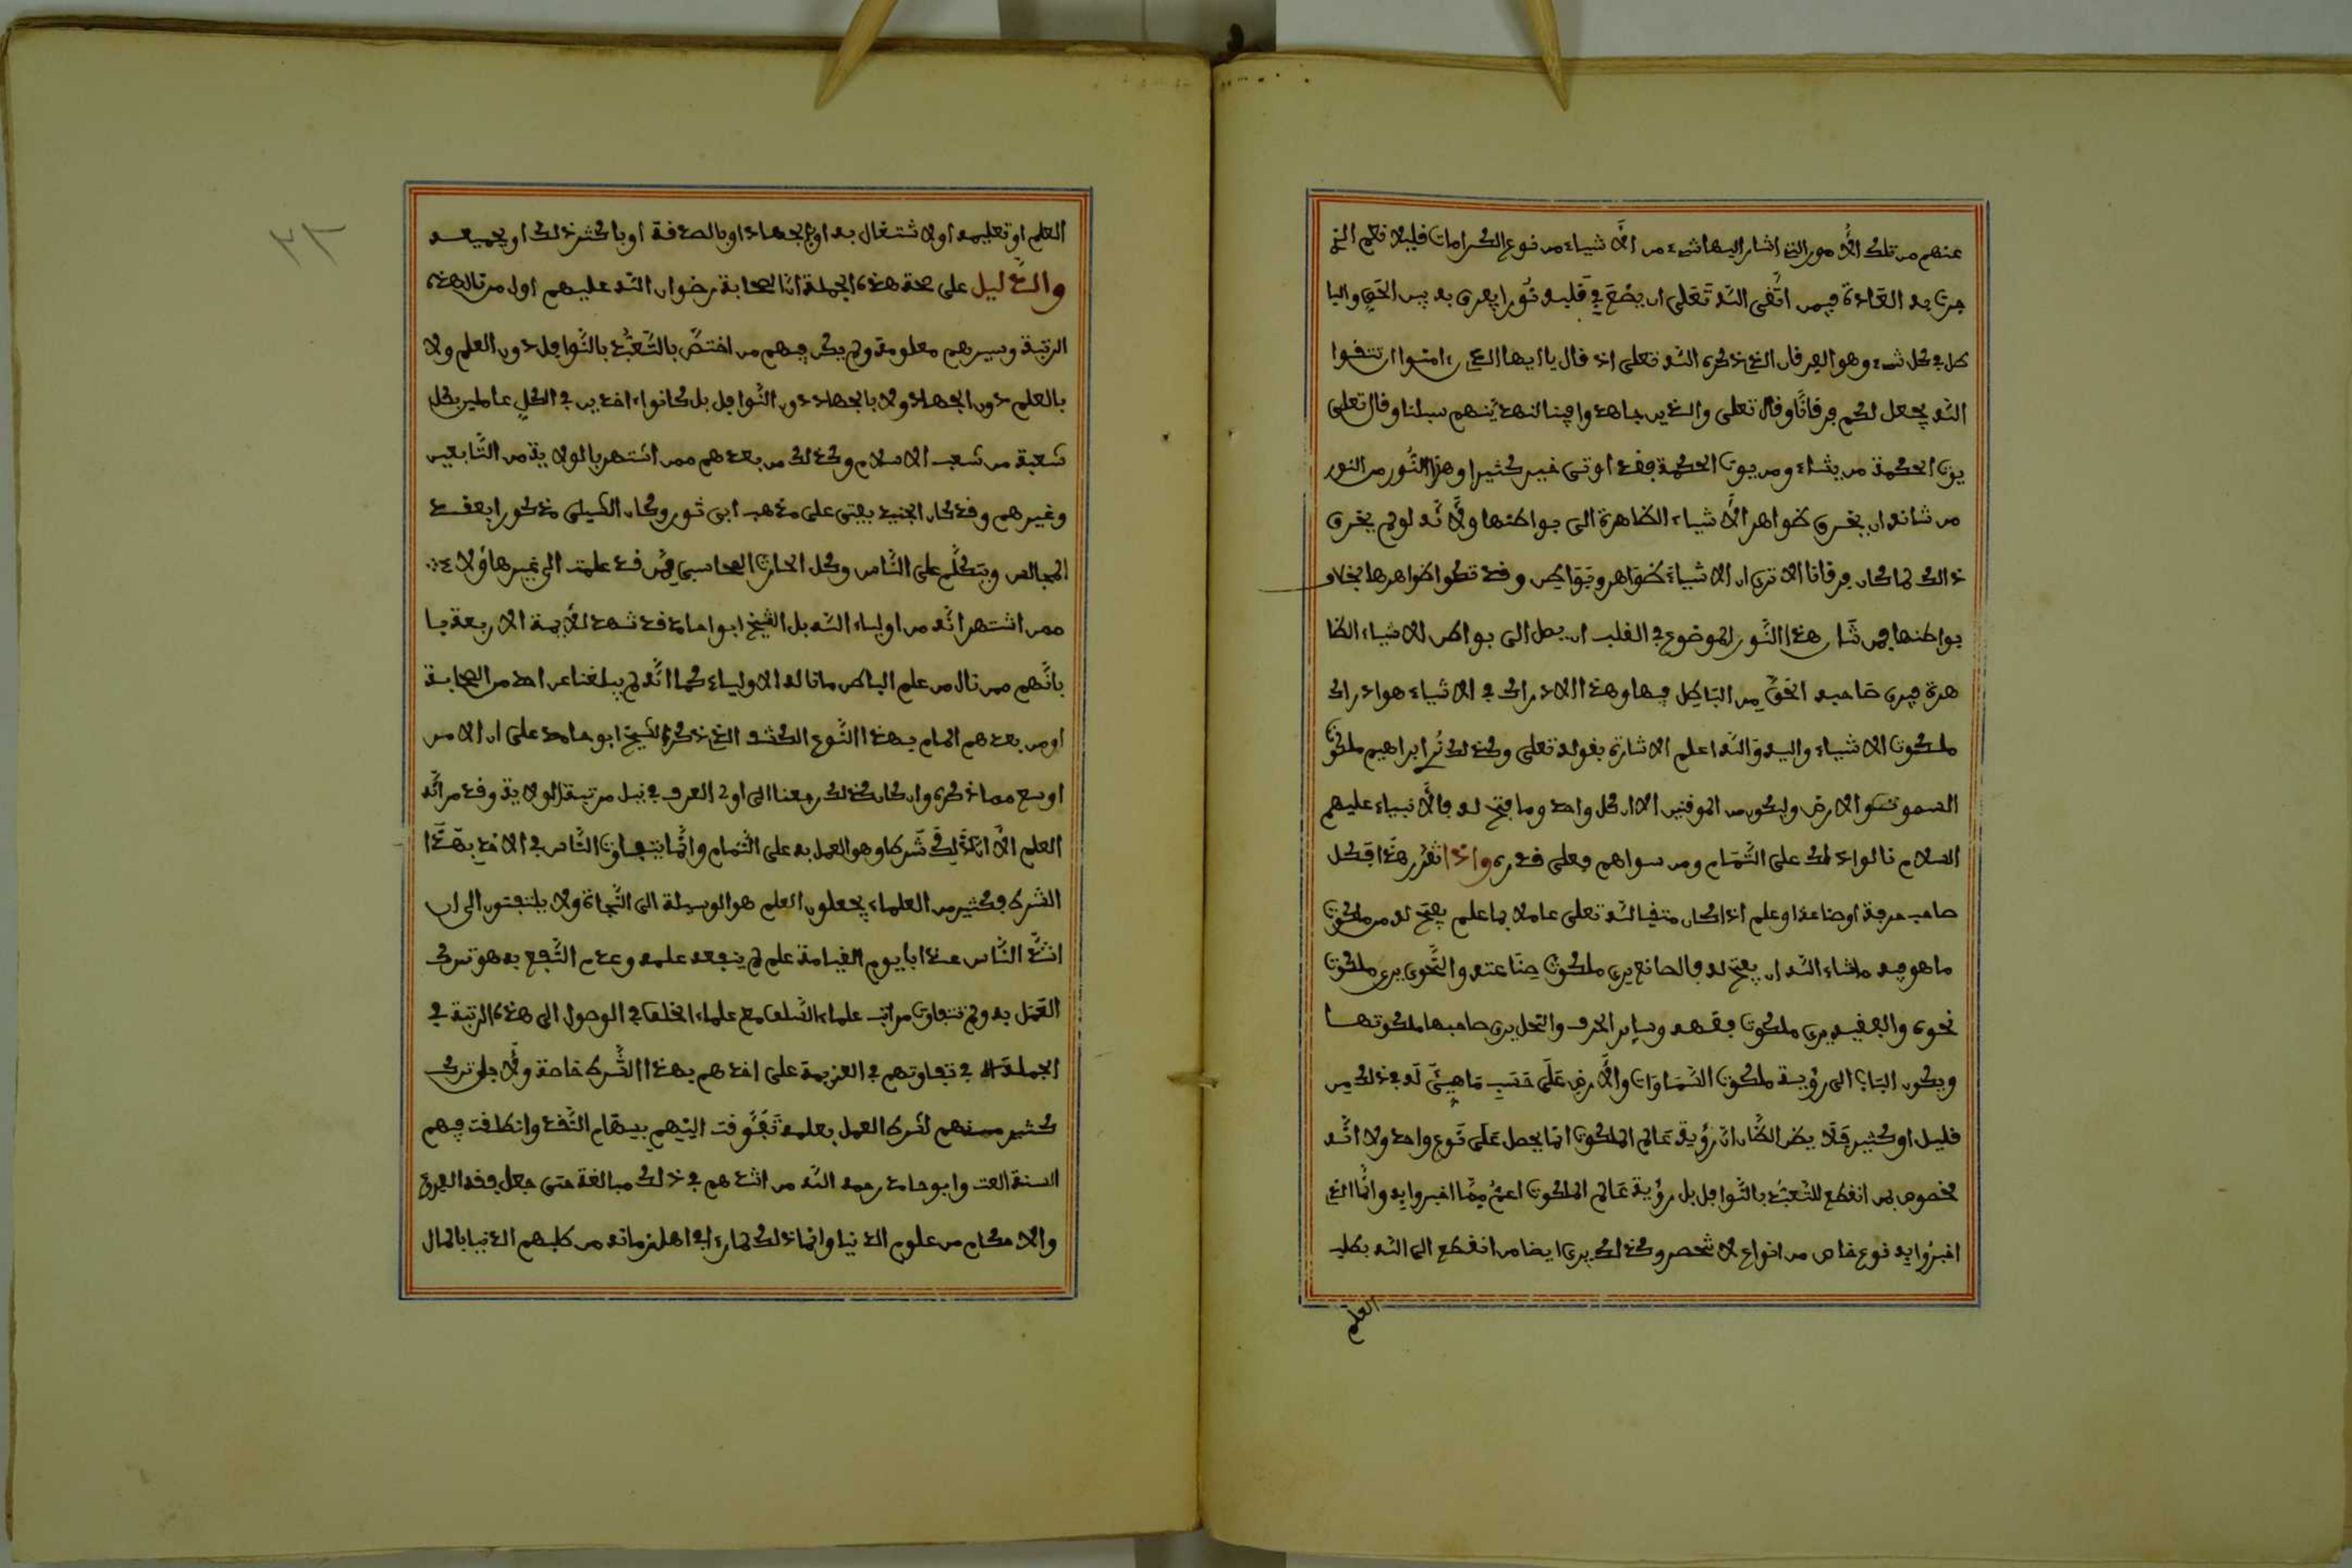 عنهم من تلك الأمور التي اشار اليها شيء من الأشياء من نوع الكرامات فليلا نعم الذي
جرت به العادة فيمن اتقى الله تعلى ان يضع في قلبه نورا يعرف به بين الحق والبا
طل في كل شيء وهو الفرقان الذي ذكره الله تعلى اذ قال يا ايها الذين ءامنوا ان تتقوا
الله يجعل لكم فرقانا وقال تعلى والذين جاهدوا فينا لنهدينهم سبلنا وقال تعلى
يوت الحكمة من يشاء ومن يوت الحكمة فقد اوتى خيرا كثيرا وهذا النور من النور
من شانه ان يخرق ظواهر الأشياء الظاهرة الى بواطنها ولأنه لو لم يخرق
ذالك لما كان فرقانا الا ترى ان الاشياء ظواهر وبواطن وقد تظهر ظواهرها بخلاف
بواطنها فمن شأن هذا النور الموضوع في القلب ان يصل الى بواطن الاشياء الظا
هرة فيرى صاحبه الحق من الباطل فيها وهذا الادراك في الاشياء هو ادراك
ملكوت الاشياء واليه والله اعلم الاشارة بقوله تعلى وكذلك نرى ابراهيم ملكوت
السموت والارض وليكون من الموقنين الا ان كل واحد وما فتح له فالأنبياء عليهم
السلام نالوا ذلك على التمام ومن سواهم فعلى قدره واذا تقرر هذا فكل
صاحب حرفة او صناعة او علم اذا كان متقيا لله تعلى عاملا بما علم يفتح له من ملكوت
ما هو فيه ما شاء الله ان يفتح له فالصانع يرى ملكوت صناعته والنحوى يرى ملكوت
نحوه والفقيه يرى ملكوت فقهه وساير الحرف والنحل يرى صاحبها ملكوتها
ويكون الباب الى رؤية ملكوت السماوات والأرض على حسب ما هيئ له في ذلك من
قليل او كثير فلا يظن الظان ان رؤية عالم الملكوت انما يحصل على نوع واحد ولا انه
مخصوص بمن انقطع للتعبد بالنوافل بل رؤية عالم الملكوت اعم مما اخبروا به وانما الذي
اخبروا به نوع خاص من انواع لا تنحصر وكذلك يرى ايضا من انقطع الى الله بطلب
العلم
٢٢
العلم او تعليمه او لا شتغال به او بالجهاد او بالصدقة او باكثر ذلك او بجميعه
والدليل على صحة هذه الجملة ان الصحابة رضوان الله عليهم اول من نال هذه
الرتبة وسيرهم معلومة ولم يكن فيهم من اختص بالتعبد بالنوافل دون العلم ولا
بالعلم دون الجهاد ولا بالجهاد دون النوافل بل كانوا ءاخذين في الكل عاملين بكل
شعبة من شعب الاسلام وكذلك من بعدهم ممن اشتهر بالولاية من التابعين
وغيرهم وقد كان الجنيد يفتى على مذهب ابى ثور وكان الشبلى مذكورا بعقد
المجالس ويتكلم على الناس وكل الحارث المحاسبي فيمن قد علمت الى غير هاؤلاء
ممن اشتهر انه من اولياء الله بل الشيخ ابو حامد قد شهد للأيمة الاربعة با
بأنهم ممن نال من علم الباطن ما نا له الاولياء كما انه لم يبلغنا عن احد من الصحابة
او من بعدهم المام بهذا النوع الكشف الذي ذكره الشيخ ابو حامد على ان الامر
اوسع مما ذكره وان كان كذلك رجعنا الى اول العرف في نيل مرتبة الولاية وقد مر انه
العلم الا ان له في شرطا وهو العمل به على التمام وانما يتفاوت الناس في الاخذ بهذا
الشرط فكثير من العلماء يجعلون العلم هو الوسيلة الى النجاة ولا يلتفتون الى ان
اشد الناس عذابا يوم القيامة عالم لم ينفعه علمه وعدم النفع به هو ترك
العمل به ولم تتفاوت مراتب علماء السلف مع علماء الخلف في الوصول الى هذه الرتبة في
الجملة الا في تفاوتهم في العزيمة على اخذهم بهذا الشرط خاصة ولأجل ترك
كثير منهم لشرط العمل بعلمه تفوقت اليهم سهام النقد وانطلقت فيهم
السنة العتب وابو حامد رحمه الله من اشدهم في ذلك مبالغة حتى جعل فقه الفروع
والاحكام من علوم الدنيا وانما ذلك لما راى اهل زمانه من طلبهم الدنيا بالمال